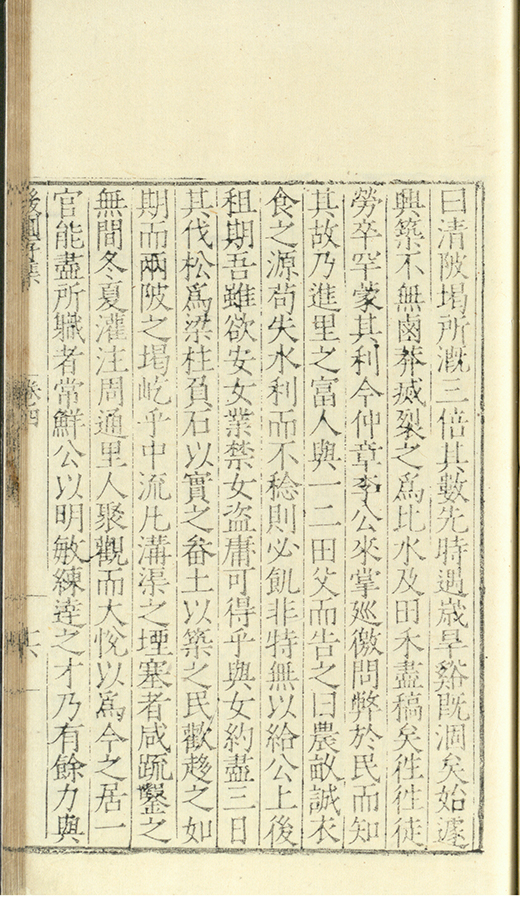 曰清陂堨所溉三倍其數先時遇歲旱谿既涸矣始遽
興築不無鹵莽烕裂之爲比水及田禾盡稿矣徃徃徒
勞卒罕蒙其利今仲章李公來掌廵徼問弊於民而知
其故乃進里之富人與一二田父而告之曰農畝誠衣
食之源苟失水利而不稔則必飢非特無以給公上後
租期吾雖欲安女業禁女盜庸可得乎與女約盡三日
其伐松爲梁柱負石以實之畚土以築之民歡趍之如
期而兩陂之堨屹乎中流凡溝渠之堙塞者咸䟽鑿之
無間冬夏灌注周通里人聚觀而大悅以爲今之居一
官能盡所職者常鮮公以明敏練達之才乃有餘力與
集
卷四